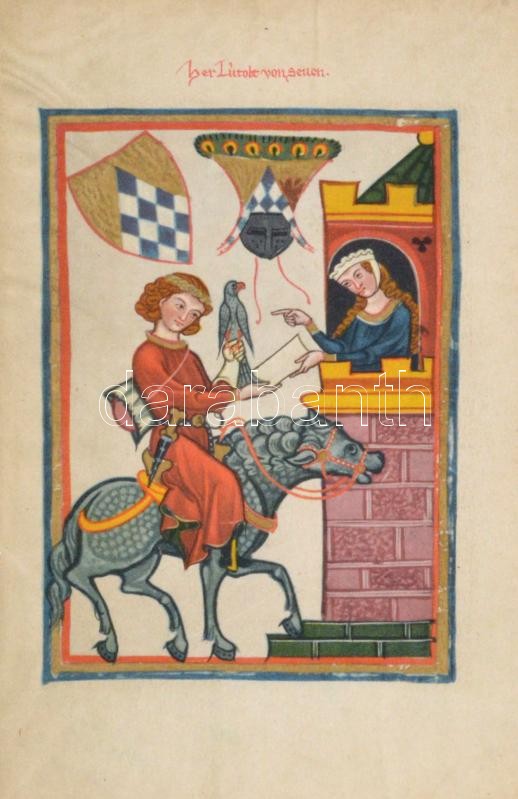 Her Lůtolt von seuen.
darabanth